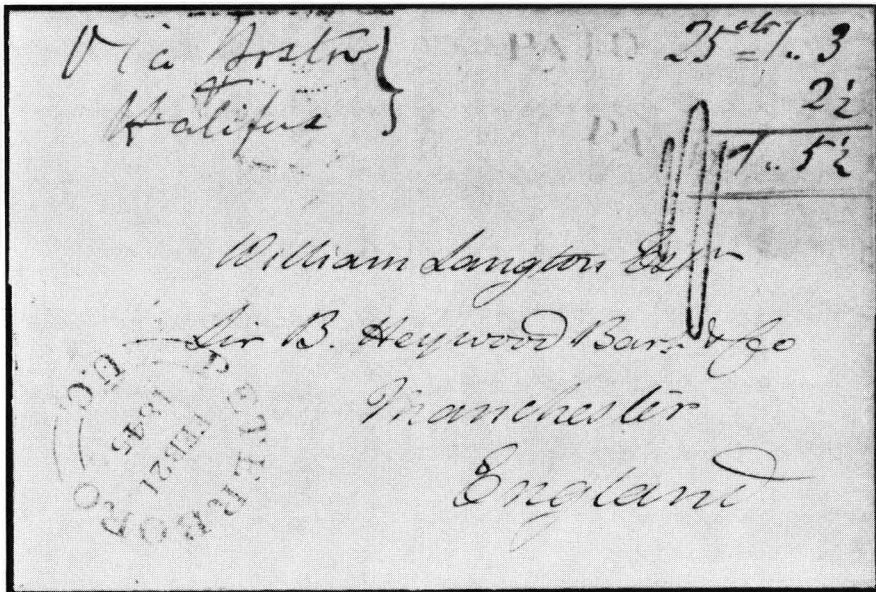 Via Boston
&
Halifax
25 cts = 1..3
2½
1..5½
William Langton Esqr
Sir B. Heywood Bart & Co
Manchester
England
PETERBORO U.C.
FEB 21
1845